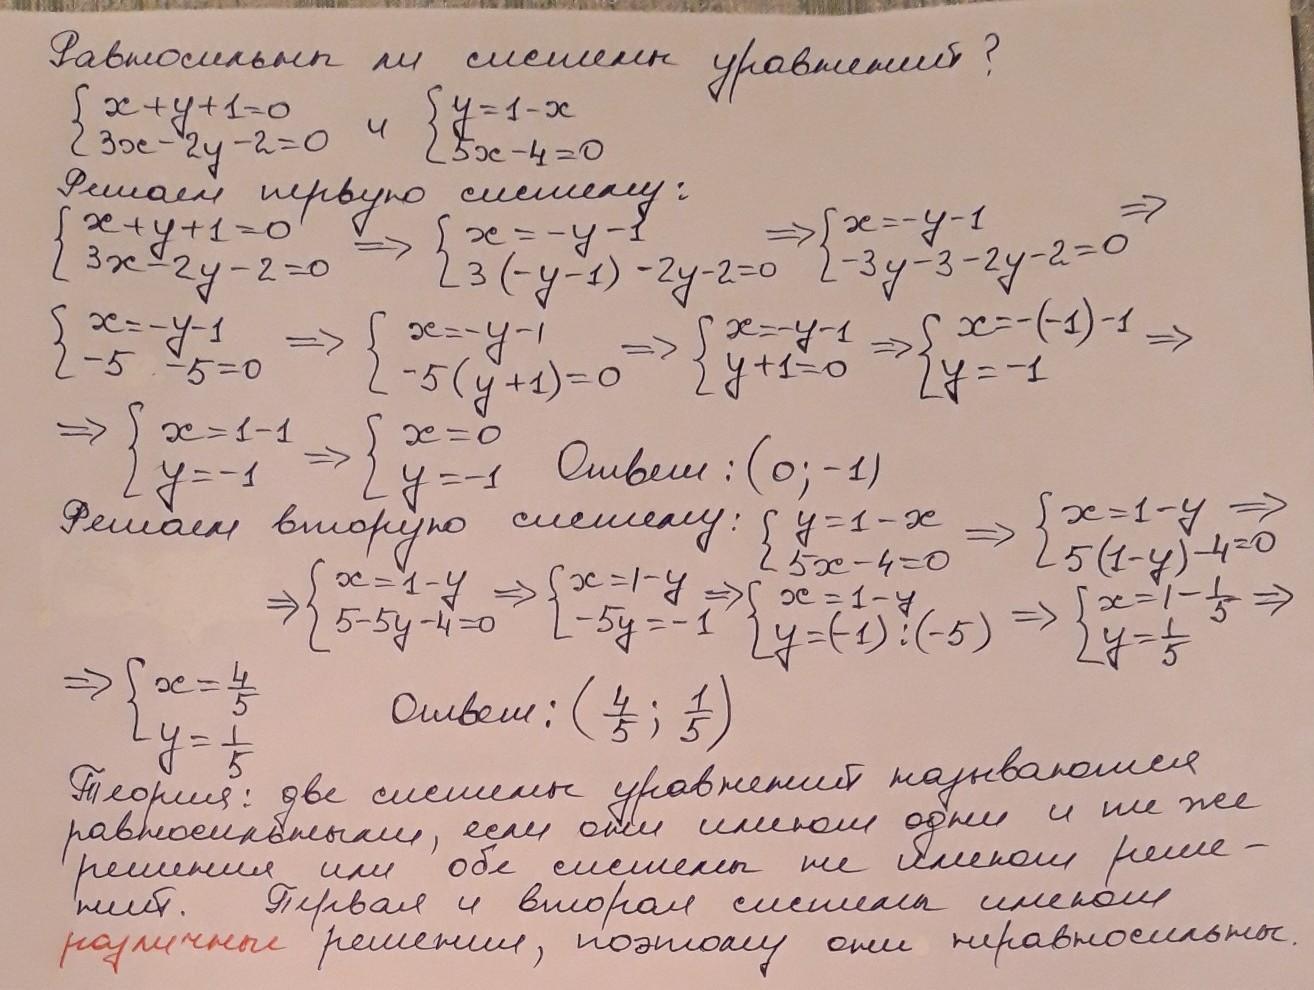 Равносильны ли системы уравнений?
{x+y+1=0 {y=1-x
{3x-2y-2=0 и {5x-4=0
Решаем первую систему:
{x+y+1=0 => {x=-y-1 => {x=-y-1 =>
{3x-2y-2=0 {3(-y-1)-2y-2=0 {-3y-3-2y-2=0
{x=-y-1 => {x=-y-1 => {x=-y-1 => {x=-(-1)-1 =>
{-5 -5=0 {-5(y+1)=0 {y+1=0 {y=-1
=> {x=1-1 => {x=0 Ответ: (0; -1)
{y=-1 {y=-1
Решаем вторую систему: {y=1-x => {x=1-y =>
{5x-4=0 {5(1-y)-4=0
=> {x=1-y => {x=1-y => {x=1-y => {x=1-1/5 =>
{5-5y-4=0 {-5y=-1 {y=(-1):(-5) {y=1/5
=> {x=4/5 Ответ: (4/5; 1/5)
{y=1/5
Теория: две системы уравнений называются
равносильными, если они имеют одни и те же
решения или обе системы не имеют реше-
ний. Первая и вторая системы имеют
различные решения, поэтому они неравносильны.